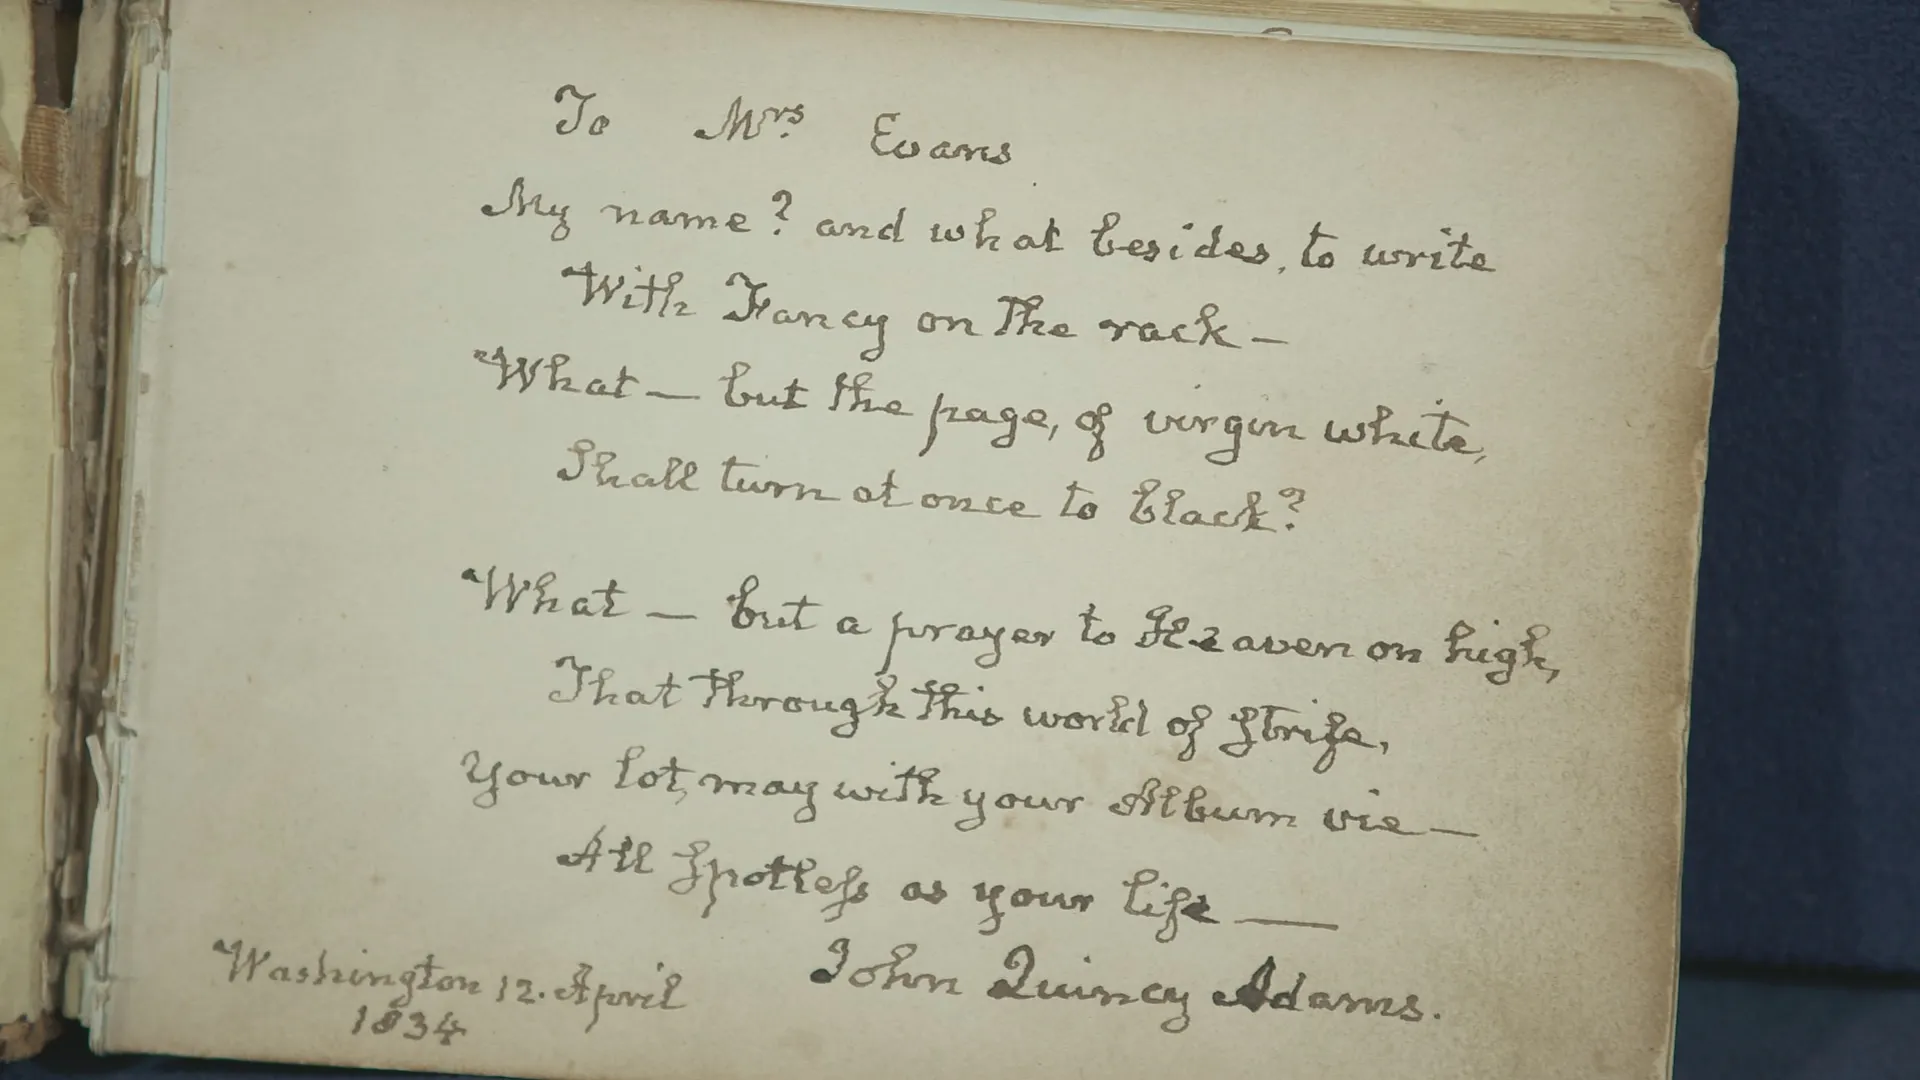 To Mrs. Evans
My name? and what besides, to write
With Fancy on the rack—
What— but the page, of virgin white,
Shall turn at once to black?
What— but a prayer to Heaven on high,
That through this world of Strife,
Your lot, may with your Album vie—
All Spotless as your life —
Washington 12. April John Quincy Adams.
1834